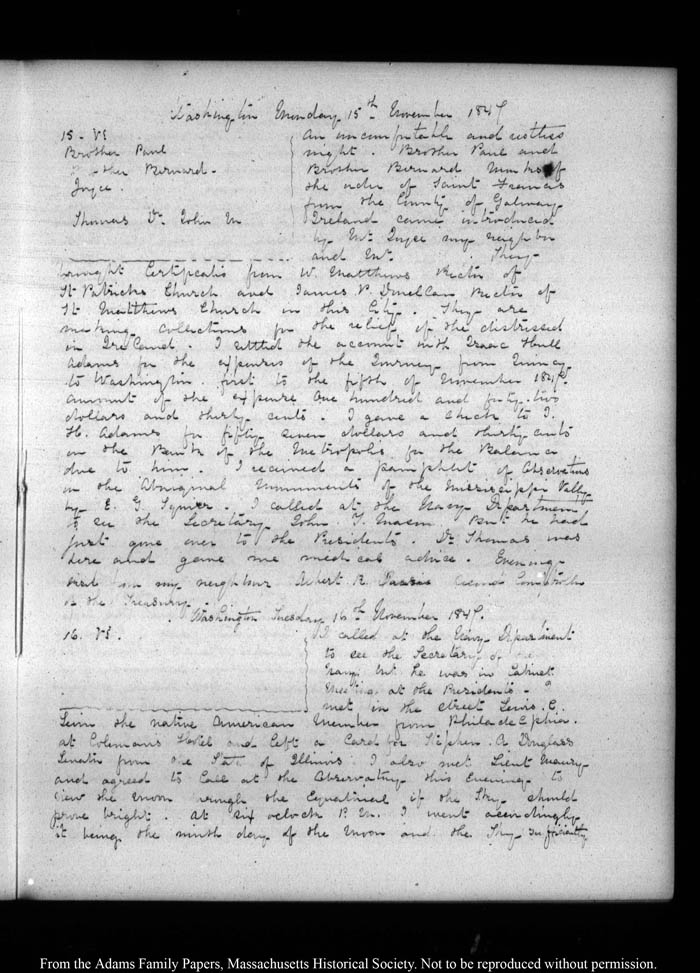 Washington Monday 15th November 1847.
15. VI
Brother Paul
-ther Bernard-
Joyce.
Thomas Dr. John M
An uncomfortable and restless
night. Brother Paul and
Brother Bernard Monks of
the order of Saint Francis
from the County of Galway
Ireland came introduced
by Mr. Joyce my neighbor
and Mr. They
brought Certificates from W. Matthews Rector of
St. Patricks Church and James B. Donelan Rector of
St Matthews Church in this City. They are
making collections for the relief of the distressed
in Ireland. I settled the account with Isaac Hull
Adams for the expences of the Journey from Quincy
to Washington. first to the fifth of November 1847.
amount of the expence One hundred and forty-two
dollars and thirty cents. I gave a check to I.
H. Adams for fifty seven dollars and thirty cents
on the Bank of the Metropolis for the Balance
due to him. I received a pamphlet of Observations
on the Aboriginal Monuments of the Mississippi Valley
by E. G. Squier. I called at the Navy Department
to see the Secretary John Y. Mason. But he had
just gone over to the Presidents. Dr. Thomas was
here and gave me medical advice. Evening
visit from my neighbour Albert R. Second Comptroller
of the Treasury.
Washington Tuesday 16th November 1847.
16. VI.
I called at the Navy Department
to see the Secretary of the
Navy but he was in Cabinet
Meeting at the Presidents. I
met in the street Lewis. C.
Levin the native American Member from Philadelphia.
at Colemans Hotel and left a Card for Stephen. A Douglass
Senator from the State of Illinois. I also met Lieut Maury
and agreed to Call at the Observatory this Evening to
view the Moon through the Equatorial if the Sky should
prove bright. at six oclock P.M. I went accordingly
it being the ninth day of the Moon and the Sky sufficiently
From the Adams Family Papers, Massachusetts Historical Society. Not to be reproduced without permission.